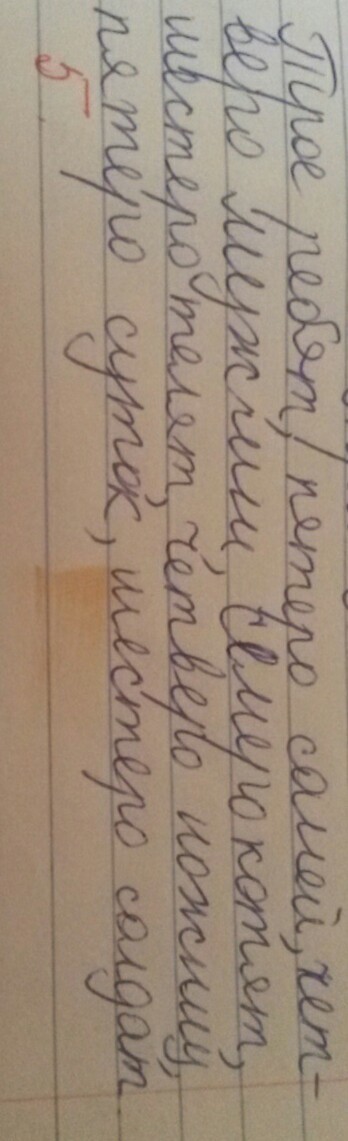 Трое ребят, пятеро самей, чет-
веро мужчин, семеро котят,
шестеро телят, четверо ножниц,
пятеро суток, шестеро солдат
5